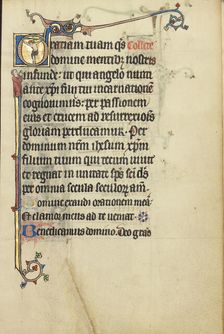 Gratiam tuam qs Collecte
domine mentibz nostris
infunde · ut qui angelo nunti
ante xpi filii tui incarnatione
cognouimus · per passionem
eius et crucem ad resurrectionis
gloriam perducamur · Per
dominum nrm ihesum xpm
filium tuum qui tecum uiuit
et regnat in unitate sps sci ds
per omnia secula seculorz am
Domine exaudi orationem mea
Et clamor meus ad te ueniat
Benedicamus domino · Deo gras